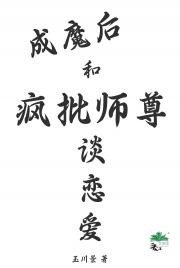 成魔后
和
疯批师尊
谈
恋
爱
玉川景 著